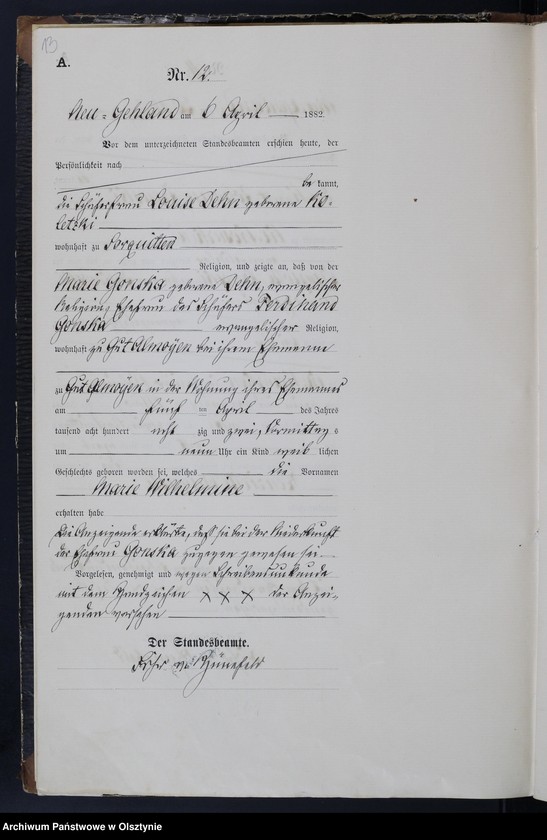 13
A.
Nr. 12.
Neu-Gehland am 6 April 1882.
Vor dem unterzeichneten Standesbeamten erschien heute, der
Persönlichkeit nach
be kannt,
die Schäferfrau Louise Dehn geborene Ko-
letzki
wohnhaft zu Sorquitten
Religion, und zeigte an, daß von der
Marie Gonska geborene Dehn, evangelischer
Religion, Ehefrau des Schäfers Ferdinand
Gonska evangelischer Religion,
wohnhaft zu Gut Almoyen bei ihrem Ehemanne
zu Gut Almoyen in der Wohnung ihres Ehemannes
am fünf ten April des Jahres
tausend acht hundert acht zig und zwei, Vormittag s
um neun Uhr ein Kind weib lichen
Geschlechts geboren worden sei, welches die Vornamen
Marie Wilhelmine
erhalten habe
Die Anzeigende erklärte, daß sie bei der Niederkunft
der Ehefrau Gonska zugegen gewesen sei
Vorgelesen, genehmigt und wegen Schreibensunkunde
mit dem Handzeichen x x x der Anzei-
genden versehen
Der Standesbeamte.
Frhr v. Hünefeld
Archiwum Państwowe w Olsztynie